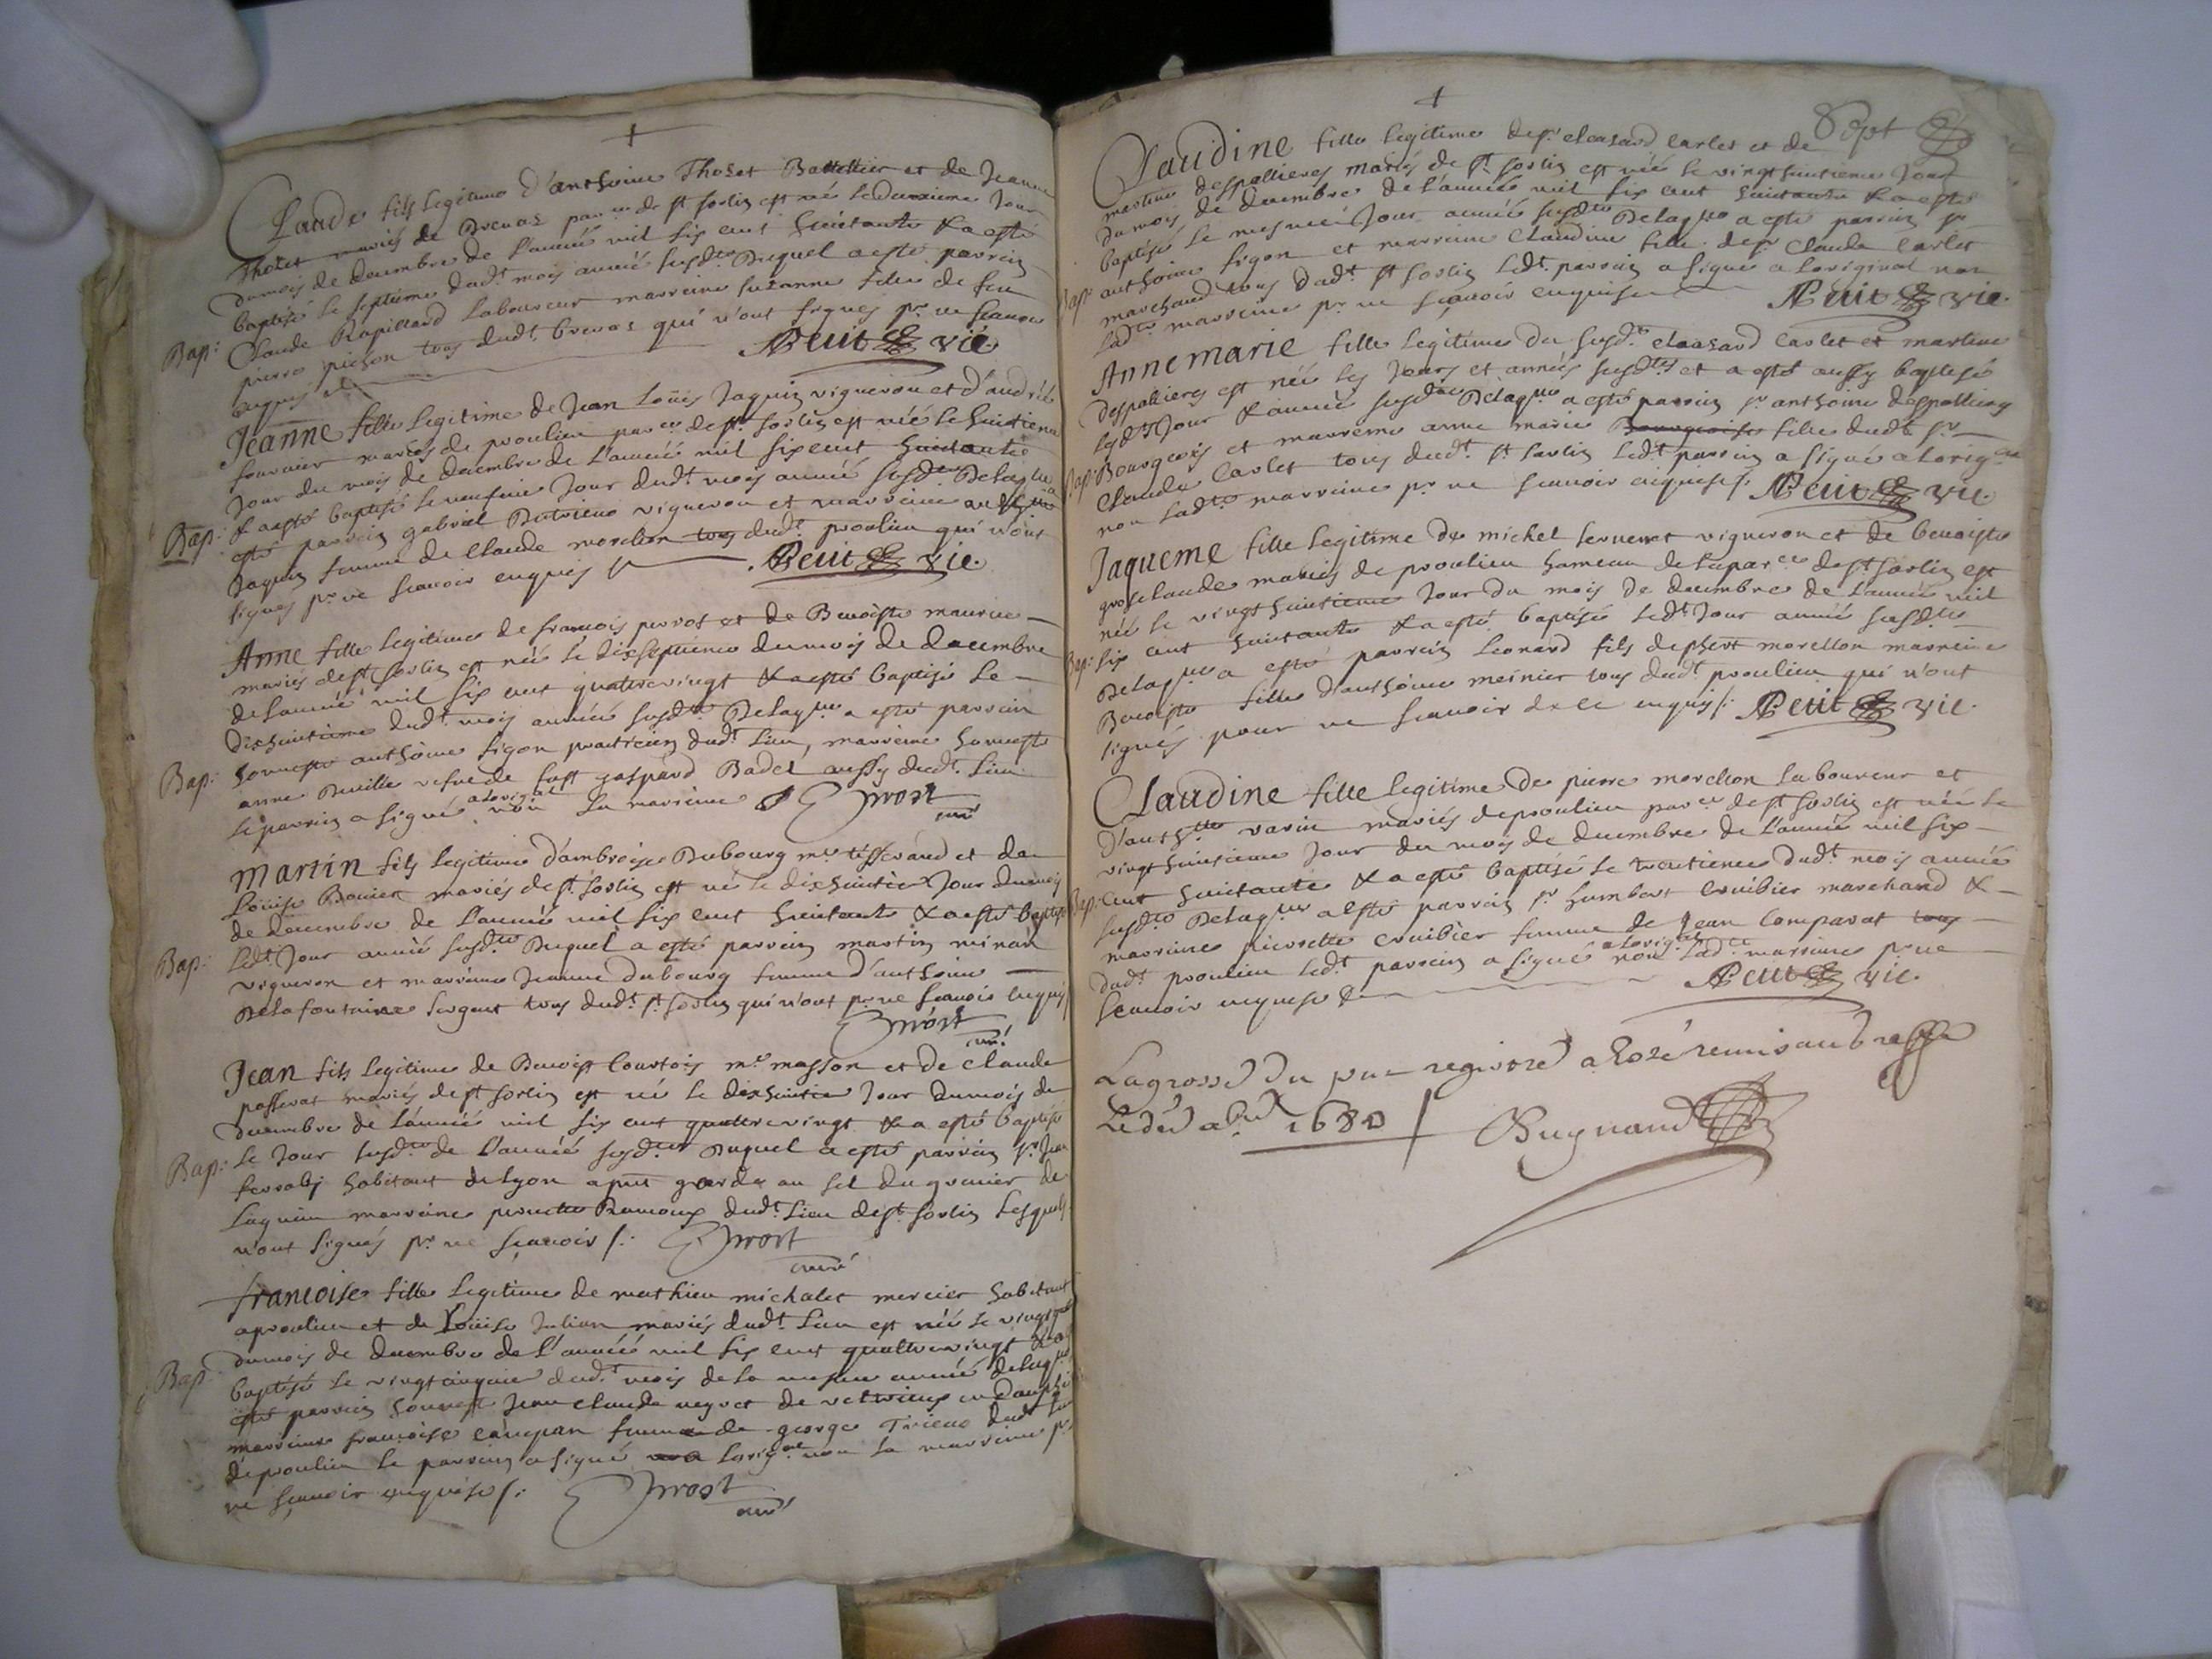 Claude fils legitime d'anthoine Tholet Battellier et de Jeanne
Tholet mariés de Brenas par.ce de st sorlin est né le deuxieme Jour
du mois de decembre de l'année mil six cent huictante & a esté
baptisé le septieme dud.t mois année susd.te Duquel a esté parrain
Bap:
Claude Rapillard Laboureur marreine suzanne fille de feu
pierre pichon tous dud.t brenas qui n'ont signes p.r ne scavoir
enquis
Petit vic.
Jeanne fille legitime de Jean Loüis Jaquin vigneron et d'andrée
fournier mariés de proulieu par.ce de st. sorlin est née le huictieme
Jour du mois de decembre de L'année mil six cent huictante
Bap:
& a esté baptisé le neufieme Jour dud.t mois année susd.te De laq.lle a
esté parrain gabriel Dutrieue vigneron et marreine
Jaquin femme de Claude morellon tous dud.t proulieu qui n'ont
signés p.r ne scavoir enquis
Petit vic.
Anne fille legitime de francois perrot et de Benoiste maurice
mariés de st. sorlin est née le dixseptieme du mois de decembre
de L'année mil six cent quattrevingt & a esté baptisé le
dixhuictieme dud.t mois année susd.te De laq.lle a esté parrain
Bap:
honneste anthoine sigon praticien dud.t Lieu, marreine honneste
anne veufve de fust gaspard Badel aussy dud.t Lieu
le parrain a signé a Lorig.al non La marreine
Prost
curé
Martin fils legitime d'ambroise Dubourg m.re tisserand et de
Loüise Bonier mariés de st. sorlin est né le dixhuictie Jour du mois
de decembre de L'année mil six cent huictante & a esté baptisé
Bap:
led.t Jour année susd.te Duquel a esté parrain martin minan
vigneron et marreine Jeanne dubourg femme d'anthoine
Delafontaine sergent tous dud.t st. sorlin qui n'ont p.r ne scavoir enquis
Prost
curé
Jean fils legitime de Benoist Courtois m.e masson et de Claude
passerat mariés de st sorlin est né le dixhuictie Jour du mois de
decembre de L'année mil six cent quattrevingt & a esté baptisé
Bap:
le Jour susd.te de L'année susd.te Duquel a esté parrain s.r Jean
habitant de Lyon garde au sel du grenier de
Lagnieu marreine Ramoux dud.t Lieu de st. sorlin Lesquels
n'ont signés p.r ne sçavoir
Prost
curé
francoise fille Legitime de mathieu michalet mercier habitant
a proulieu et de Loüise Julian mariés dud.t Lieu est née le
du mois de decembre de L'année mil six cent quattrevingt & a
Bap:
baptisé le vingt cinquie dud.t mois de la mesme année de laq.lle
esté parrain honneste Jean claude negret de vettrieux en dauphi
marreine francoise femme de george Trieue dud.t Lieu
de proulieu le parrain a signé a Lorig.al non la marreine p.r
ne sçavoir enquise
Prost
curé
Sept
Claudine fille legitime de s.r eleasard Carlet et de
martine despallieres mariés de st. sorlin est née le vingthuictieme Jour
du mois de decembre de l'année mil six cent huictante & a esté
baptisé le mesme Jour année susd.te De laq.lle a esté parrain s.r
Bap:
anthoine sigon et marreine Claudine fille de s.r Claude Carlet
marchand tous dud.t st sorlin led.t parrain a signé a Loriginal non
lad.te marreine p.r ne sçavoir enquise
Petit vic.
Anne marie fille legitime du susd.t eleasard Carlet et martine
Despallieres est née les Jours et année susd.tes et a esté aussy baptisé
lesd.ts Jour & année susd.te De laq.lle a esté parrain s.r anthoine despallieres
Bap:
Bourgeois et marreine anne marie fille dud.t s.r
Claude Carlet tous dud.t st. sorlin led.t parrain a signé a Lorig.al
non lad.te marreine p.r ne scavoir enquise
Petit vic.
Jaqueme fille legitime de michel servenet vigneron et de benoiste
groselaude mariés de proulieu hameau de la par.ce de st sorlin est
née le vingthuictieme Jour du mois de decembre de L'année mil
six cent huictante & a esté baptisé led.t Jour année susd.te
Bap:
De laq.lle a esté parrain Leonard fils de phert morellon marreine
Benoiste fille d'anthoine meinier tous dud.t proulieu qui n'ont
signés pour ne scavoir de ce enquis
Petit vic.
Claudine fille legitime de pierre morellon laboureur et
D'anth.tte varin mariés de proulieu par.ce de st sorlin est née le
vingthuictieme Jour du mois de decembre de L'année mil six
Bap:
cent huictante & a esté baptisé le trentieme dud.t mois année
susd.te De laq.lle a esté parrain s.r humbert Cruibier marchand &
marreine pierrette cruibier femme de Jean Comparat tous
dud.t proulieu led.t parrain a signé a Lorig.al non lad.te marreine p.r ne
scavoir enquise
Petit vic.
La grosse du registre a esté remis au greffe
Le 1681
Bugnand